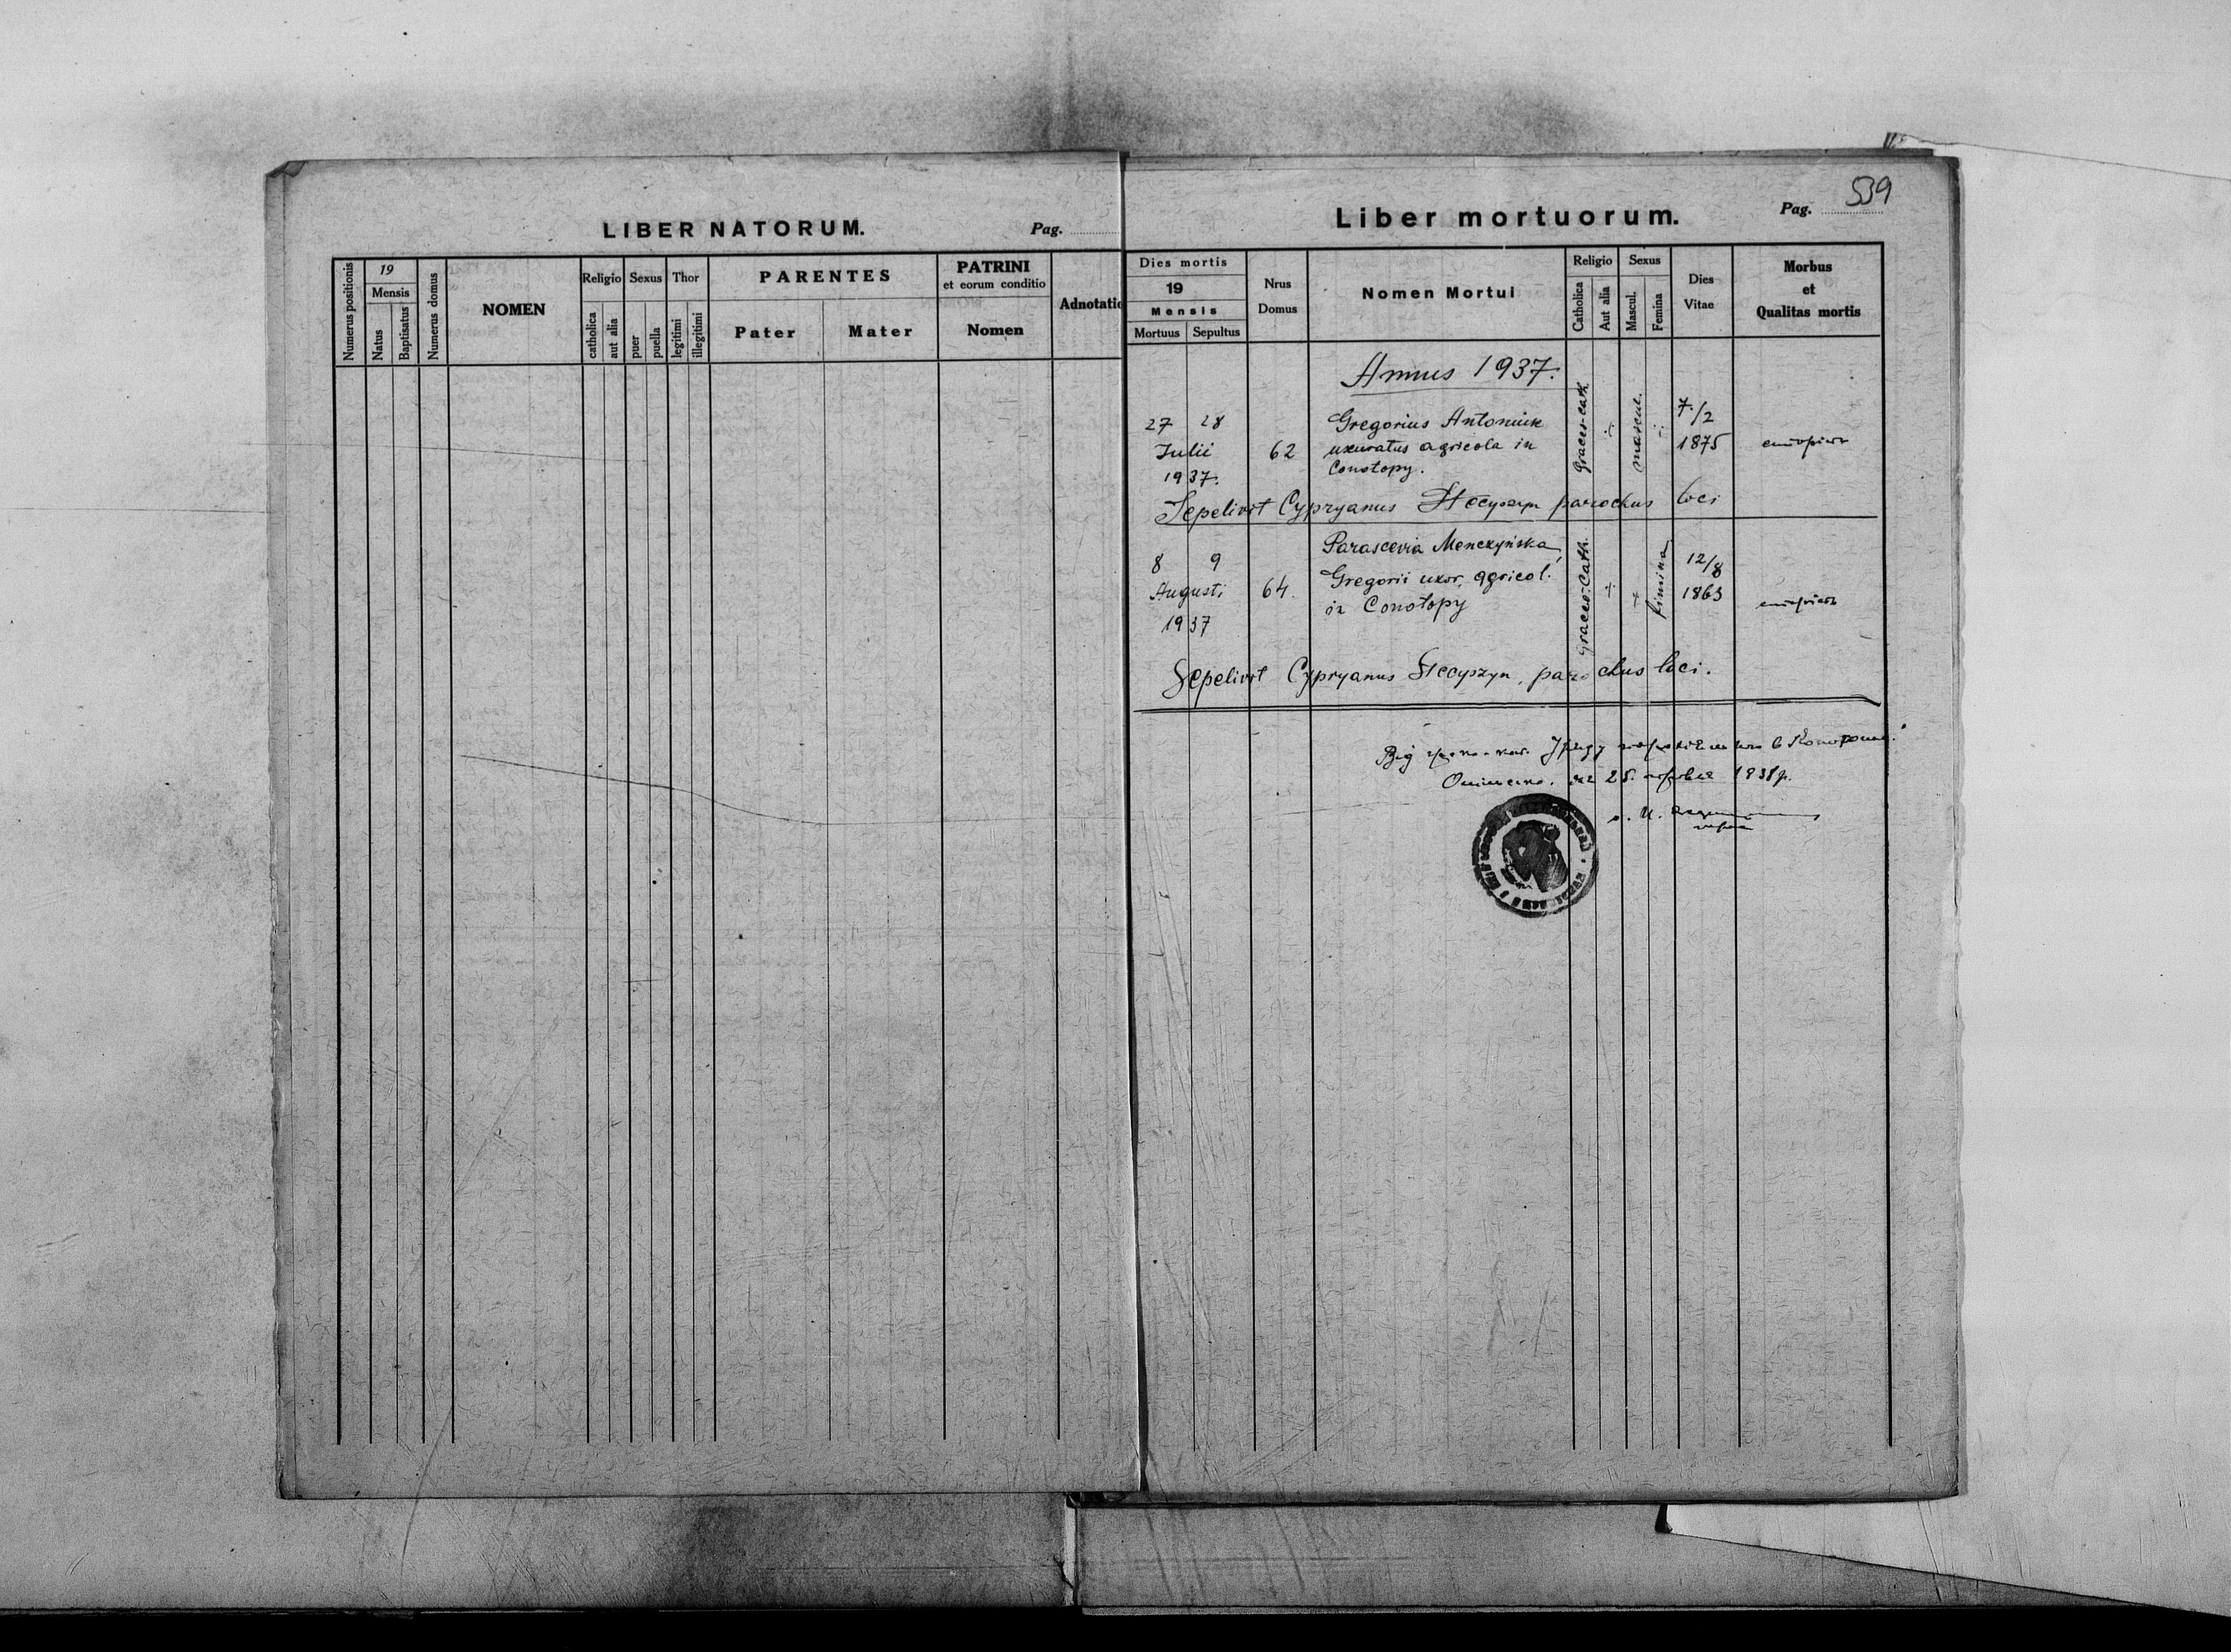 LIBER NATORUM.
Pag.
Numerus positionis
19
Mensis
Natus
Baptisatus
Numerus domus
NOMEN
Religio
catholica
aut alia
Sexus
puer
puella
Thor
legitimi
illegitimi
PARENTES
Pater
Mater
PATRINI
et eorum conditio
Nomen
Adnotatio
Liber mortuorum.
Pag. 539
Dies mortis
19
Mensis
Mortuus
Sepultus
Nrus
Domus
Nomen Mortui
Religio
Catholica
Aut alia
Sexus
Mascul.
Femina
Dies
Vitae
Morbus
et
Qualitas mortis
Annus 1937.
27 28
Julii
1937.
62
Gregorius Antoniuk
uxuratus agricola in
Conotopy.
Graeco-cath
mascul.
7./2
1875
Sepelivit Cypryanus Stecyszyn parochus loci
8 9
Augusti
1937
64.
Parascevia Menczyńska,
Gregorii uxor, agricol.
in Conotopy
Graeco-Cath.
fimina
12/8
1863
Sepelivit Cypryanus Stecyszyn, parochus loci.
Від греко-кат. Уряду в
25. 1938 р.